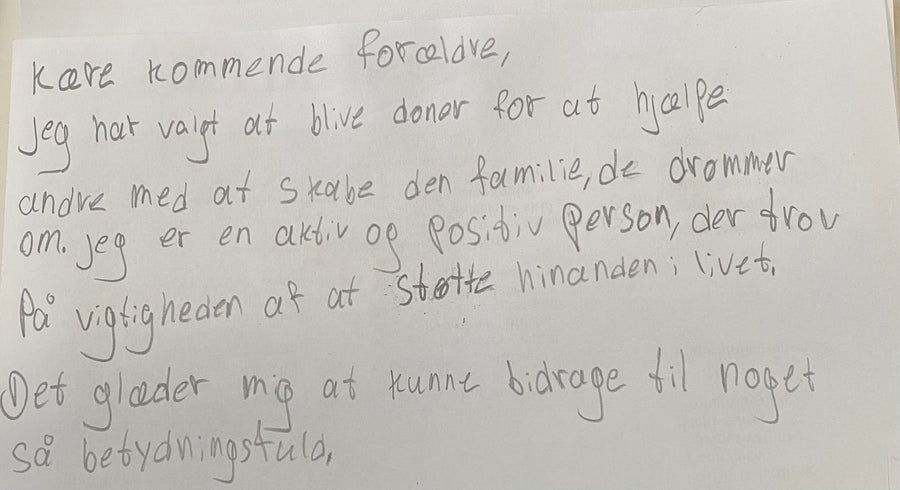 Kære kommende forældre,
Jeg har valgt at blive donor for at hjælpe
andre med at skabe den familie, de drømmer
om. Jeg er en aktiv og positiv person, der trov
På vigtigheden af at støtte hinanden i livet.
Det glæder mig at kunne bidrage til noget
så betydningsfuld.